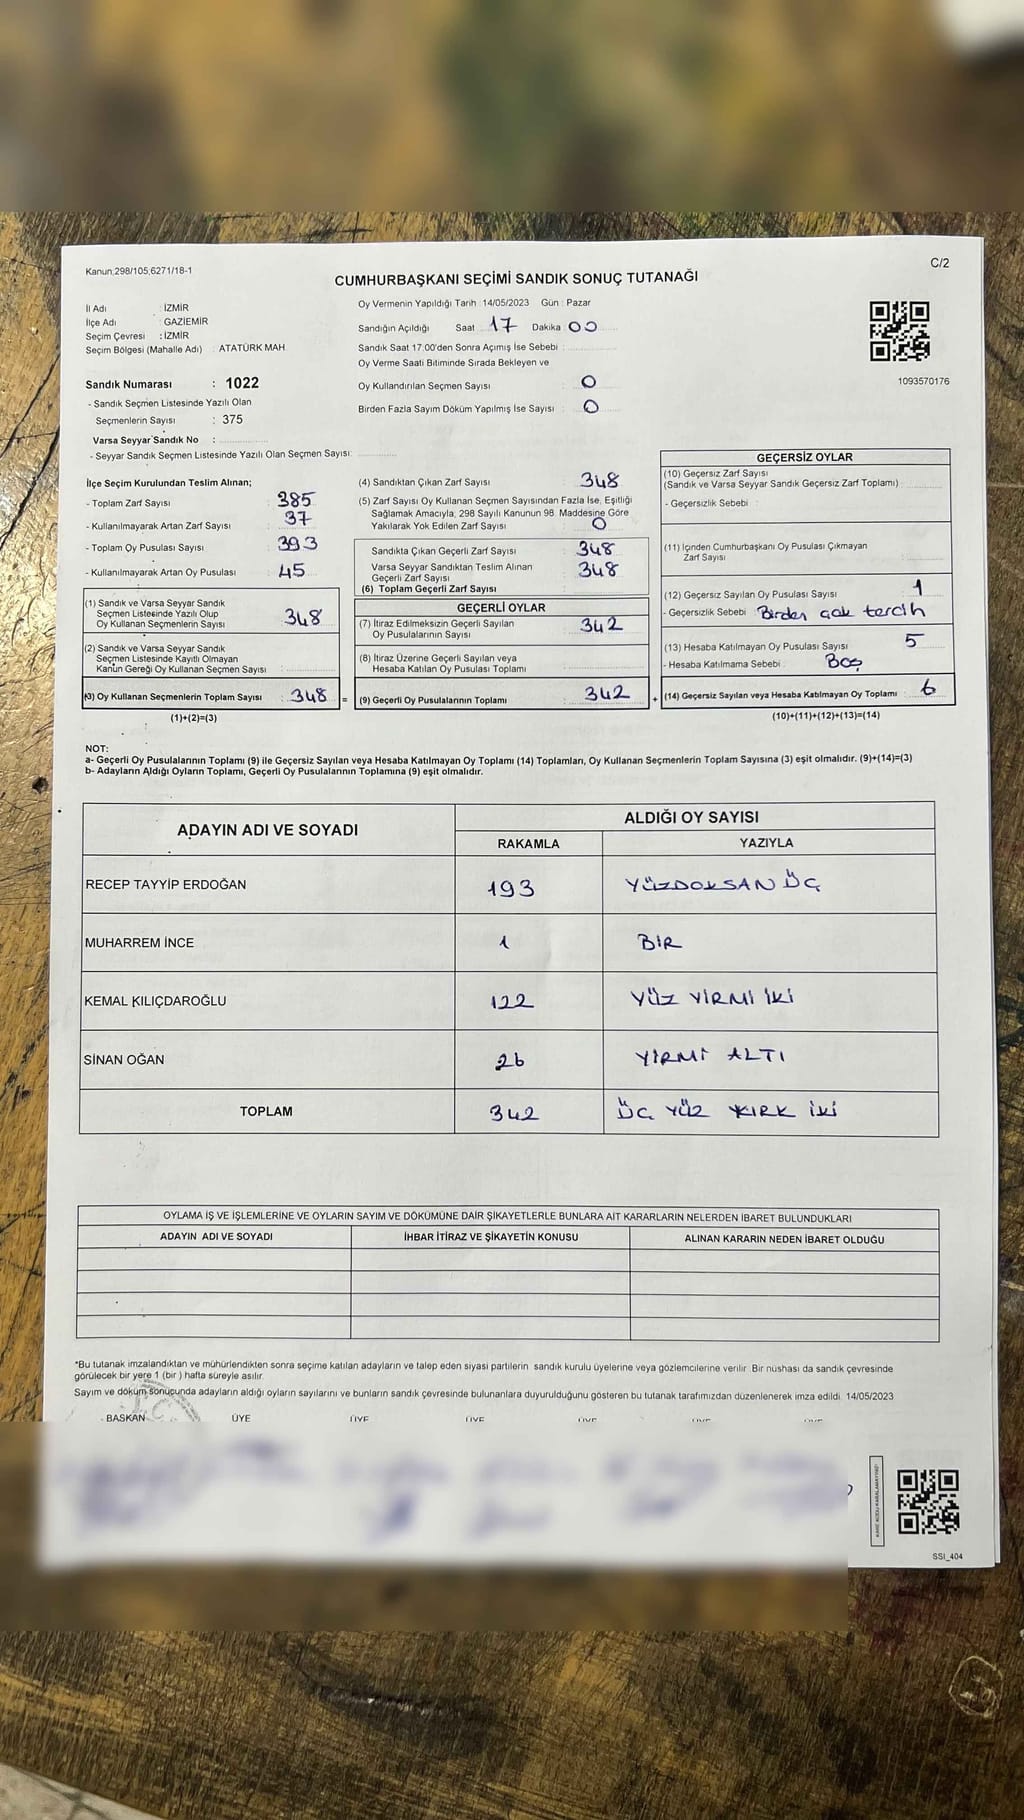 Kanun;298/105;6271/18-1
C/2
CUMHURBAŞKANI SEÇİMİ SANDIK SONUÇ TUTANAĞI
İl Adı : İZMİR
İlçe Adı : GAZİEMİR
Seçim Çevresi : İZMİR
Seçim Bölgesi (Mahalle Adı) : ATATÜRK MAH
Sandık Numarası : 1022
- Sandık Seçmen Listesinde Yazılı Olan
Seçmenlerin Sayısı : 375
Varsa Seyyar Sandık No :
- Seyyar Sandık Seçmen Listesinde Yazılı Olan Seçmen Sayısı:
Oy Vermenin Yapıldığı Tarih : 14/05/2023 Gün : Pazar
Sandığın Açıldığı Saat 17 Dakika 00
Sandık Saat 17.00'den Sonra Açımış İse Sebebi :
Oy Verme Saati Bitiminde Sırada Bekleyen ve
Oy Kullandırılan Seçmen Sayısı : 0
Birden Fazla Sayım Döküm Yapılmış İse Sayısı : 0
1093570176
İlçe Seçim Kurulundan Teslim Alınan;
- Toplam Zarf Sayısı : 385
- Kullanılmayarak Artan Zarf Sayısı : 37
- Toplam Oy Pusulası Sayısı : 393
- Kullanılmayarak Artan Oy Pusulası : 45
(1) Sandık ve Varsa Seyyar Sandık
Seçmen Listesinde Yazılı Olup
Oy Kullanan Seçmenlerin Sayısı : 348
(2) Sandık ve Varsa Seyyar Sandık
Seçmen Listesinde Kayıtlı Olmayan
Kanun Gereği Oy Kullanan Seçmen Sayısı :
(3) Oy Kullanan Seçmenlerin Toplam Sayısı : 348 =
(1)+(2)=(3)
(4) Sandıktan Çıkan Zarf Sayısı : 348
(5) Zarf Sayısı Oy Kullanan Seçmen Sayısından Fazla İse, Eşitliği
Sağlamak Amacıyla, 298 Sayılı Kanunun 98. Maddesine Göre
Yakılarak Yok Edilen Zarf Sayısı : 0
Sandıkta Çıkan Geçerli Zarf Sayısı : 348
Varsa Seyyar Sandıktan Teslim Alınan
Geçerli Zarf Sayısı : 348
(6) Toplam Geçerli Zarf Sayısı
GEÇERLİ OYLAR
(7) İtiraz Edilmeksizin Geçerli Sayılan
Oy Pusulalarının Sayısı : 342
(8) İtiraz Üzerine Geçerli Sayılan veya
Hesaba Katılan Oy Pusulası Toplamı :
(9) Geçerli Oy Pusulalarının Toplamı : 342 +
GEÇERSİZ OYLAR
(10) Geçersiz Zarf Sayısı
(Sandık ve Varsa Seyyar Sandık Geçersiz Zarf Toplamı) :
- Geçersizlik Sebebi :
(11) İçinden Cumhurbaşkanı Oy Pusulası Çıkmayan
Zarf Sayısı :
(12) Geçersiz Sayılan Oy Pusulası Sayısı : 1
- Geçersizlik Sebebi : Birden çok tercih
(13) Hesaba Katılmayan Oy Pusulası Sayısı : 5
- Hesaba Katılmama Sebebi : Boş
(14) Geçersiz Sayılan veya Hesaba Katılmayan Oy Toplamı : 6
(10)+(11)+(12)+(13)=(14)
NOT:
a- Geçerli Oy Pusulalarının Toplamı (9) ile Geçersiz Sayılan veya Hesaba Katılmayan Oy Toplamı (14) Toplamları, Oy Kullanan Seçmenlerin Toplam Sayısına (3) eşit olmalıdır. (9)+(14)=(3)
b- Adayların Aldığı Oyların Toplamı, Geçerli Oy Pusulalarının Toplamına (9) eşit olmalıdır.
ADAYIN ADI VE SOYADI
ALDIĞI OY SAYISI
RAKAMLA YAZIYLA
RECEP TAYYİP ERDOĞAN 193 YÜZDOKSAN ÜÇ
MUHARREM İNCE 1 BİR
KEMAL KILIÇDAROĞLU 122 YÜZ YİRMİ İKİ
SİNAN OĞAN 26 YİRMİ ALTI
TOPLAM 342 ÜÇ YÜZ KIRK İKİ
OYLAMA İŞ VE İŞLEMLERİNE VE OYLARIN SAYIM VE DÖKÜMÜNE DAİR ŞİKAYETLERLE BUNLARA AİT KARARLARIN NELERDEN İBARET BULUNDUKLARI
ADAYIN ADI VE SOYADI İHBAR İTİRAZ VE ŞİKAYETİN KONUSU ALINAN KARARIN NEDEN İBARET OLDUĞU
*Bu tutanak imzalandıktan ve mühürlendikten sonra seçime katılan adayların ve talep eden siyasi partilerin sandık kurulu üyelerine veya gözlemcilerine verilir. Bir nüshası da sandık çevresinde
görülecek bir yere 1 (bir ) hafta süreyle asılır.
Sayım ve döküm sonucunda adayların aldığı oyların sayılarını ve bunların sandık çevresinde bulunanlara duyurulduğunu gösteren bu tutanak tarafımızdan düzenlenerek imza edildi. 14/05/2023
BAŞKAN ÜYE ÜYE ÜYE ÜYE ÜYE ÜYE
SSI_404